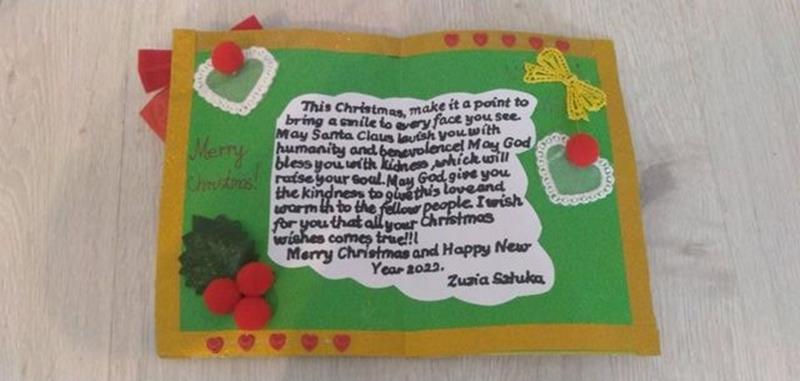 Merry
Christmas!
This Christmas, make it a point to
bring a smile to every face you see.
May Santa Claus lavish you with
humanity and benevolence! May God
bless you with kidness, which will
raise your soul. May God give you
the kindness to give this love and
warmth to the fellow people. I wish
for you that all your Christmas
wishes comes true!!!
Merry Christmas and Happy New
Year 2022.
Zuzia Sztuka